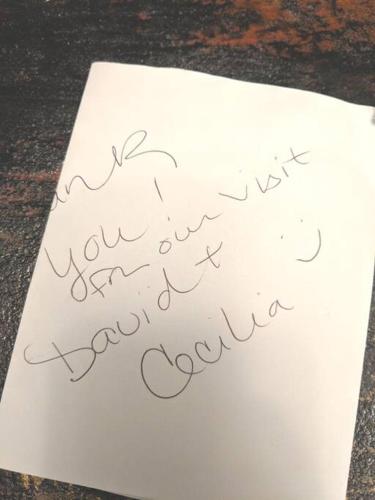 ank
you!
for our visit
David + :)
Cecilia